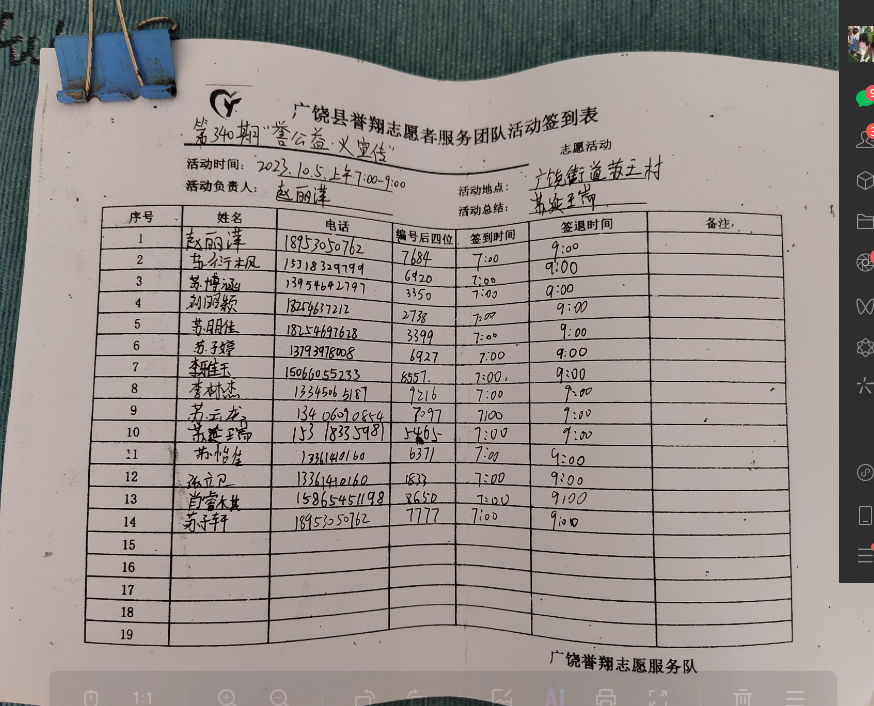 广饶县誉翔志愿者服务团队活动签到表
第340期"誉公益·义宣传" 志愿活动
活动时间: 2023.10.5.上午7:00-9:00 活动地点: 广饶街道苏王村
活动负责人: 赵丽萍 活动总结: 苏延瑞
序号 姓名 电话 编号后四位 签到时间 签退时间 备注
1 赵丽萍 18953050762 7684 7:00 9:00
2 15318329799 6920 7:00 9:00
3 苏博涵 13954642797 3350 7:00 9:00
4 刘明颖 18254637212 2738 7:00 9:00
5 苏明佳 18254697628 3399 7:00 9:00
6 苏子婷 13793978008 6927 7:00 9:00
7 李雅玉 15066055233 8557. 7:00. 9:00
8 李林杰 13345065187 9216 7:00 9:00
9 苏云龙 13406090854 7097 7:00 9:00
10 苏延瑞 15318335981 5465 7:00 9:00
11 苏怡佳 13361410160 6371 7:00 9:00
12 张立卫 13361410160 1833 7:00 9:00
13 肖睿林 15865451198 8650 7:00 9:00
14 苏子轩 18953050762 7777 7:00 9:00
15
16
17
18
19
广饶誉翔志愿服务队
1:1
AI